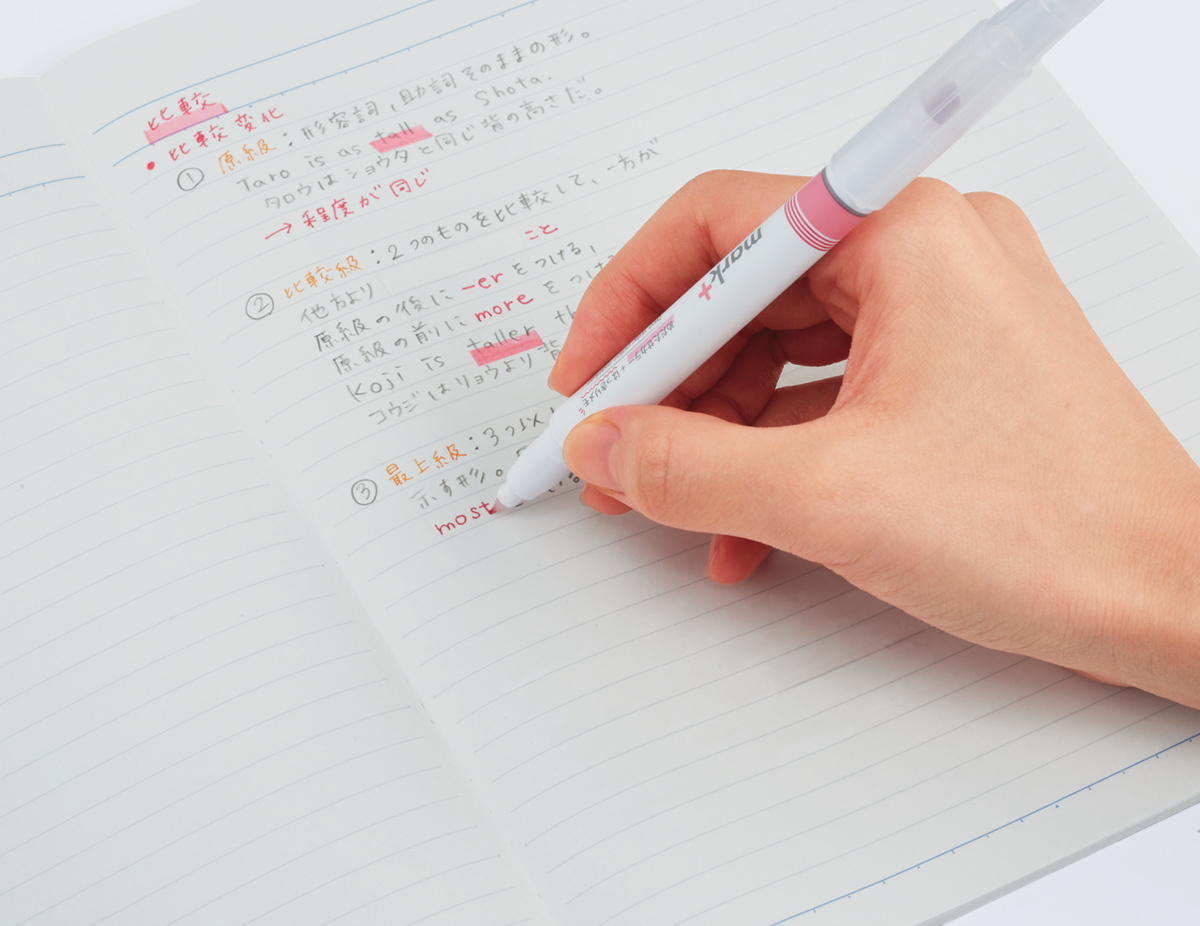 比較
• 比較変化
① 原級：形容詞，助詞そのままの形。
Taro is as tall as Shota.
タロウはショウタと同じ背の高さだ。
→ 程度が同じ
② 比較級：2つのものを比較して、一方が
他方より
こと
原級の後に -er をつける，
原級の前に more をつける
Koji is taller th
コウジはリョウより背
③ 最上級：3つ以
示す形。
most
mark+
めだたせカラー + はっきりメモ